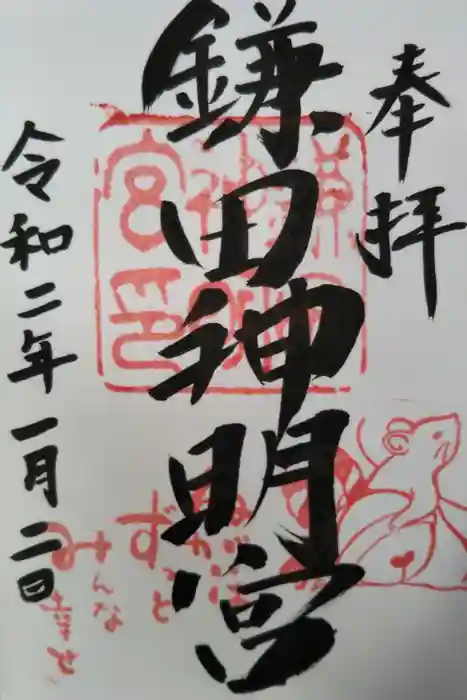 奉拝
鎌田神明宮
令和二年一月二日
ずっと
みんな
幸せ